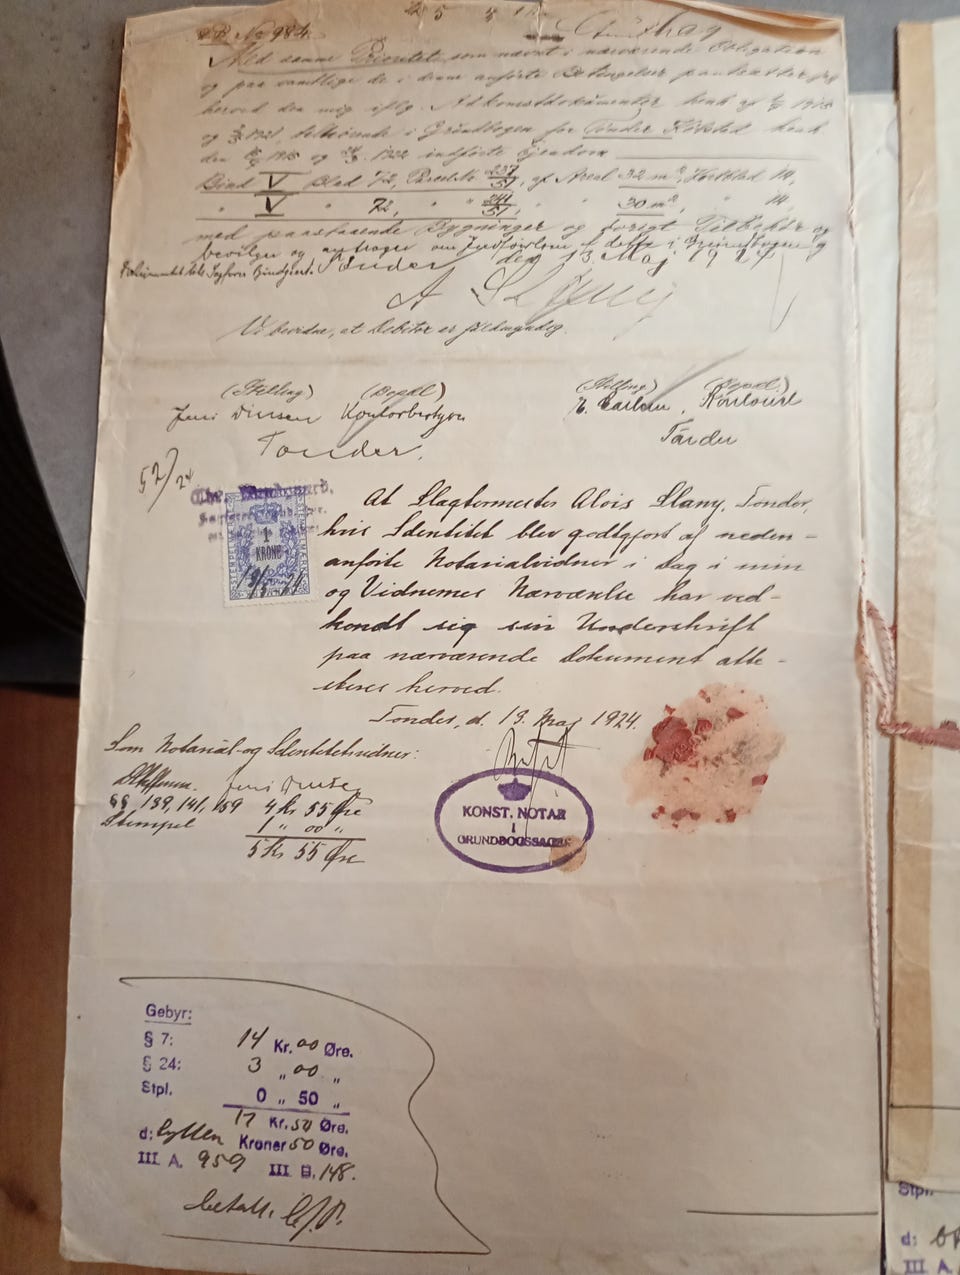 No 984.
Med samme Prioritet som nævnt i nærværende Obligation
og paa samtlige de i denne anførte Betingelser pantsætter jeg
herved den mig iflg. Adkomstdokumenter
og 1921, tilhørende i Grundbogen for Tønder Købsted
den 1915 og 1922 indførte Ejendom
Bind V Blad 72, Parcel No 237/51, af Areal 32 m², Hartkbl. 14,
" V " 72, " " 241/51, " " 30 m², " 14,
med paastaaende Bygninger og forigt Tilbehør og
bevilger og andrager om Indførelsen af dette i Grundbogen
Tønder den 13. Maj 1924
A Slany
Vi bevidne, at Debitor er fuldmyndig.
(Stilling) (Bopæl) (Stilling) (Bopæl)
Jens Kontorbestyrer Kontorist
Tønder. Tønder
52/24
STEMPELMÆRKE
1
KRONE
13/5 24
At Slagtermester Alois Slany, Tønder,
hvis Identitet blev godtgjort af neden-
anførte Notarialvidner i Dag i min
og Vidnernes Nærværelse har ved-
kendt sig sin Underskrift
paa nærværende Dokument atte-
steres herved.
Tønder, d. 13. Maj 1924.
Som Notarial- og Identitetsvidner:
Jens
§§ 139, 141, 159 4 Kr 55 Øre
Stempel 1 " 00 "
5 Kr 55 Øre
KONST. NOTAR
I
GRUNDBOGSSAGER
Gebyr:
§ 7: 14 Kr. 00 Øre.
§ 24: 3 " 00 "
Stpl. 0 " 50 "
17 Kr. 50 Øre.
d: Sytten Kroner 50 Øre.
III. A. 959 III. B. 148.
betalt.
Stpl.
d:
III. A.